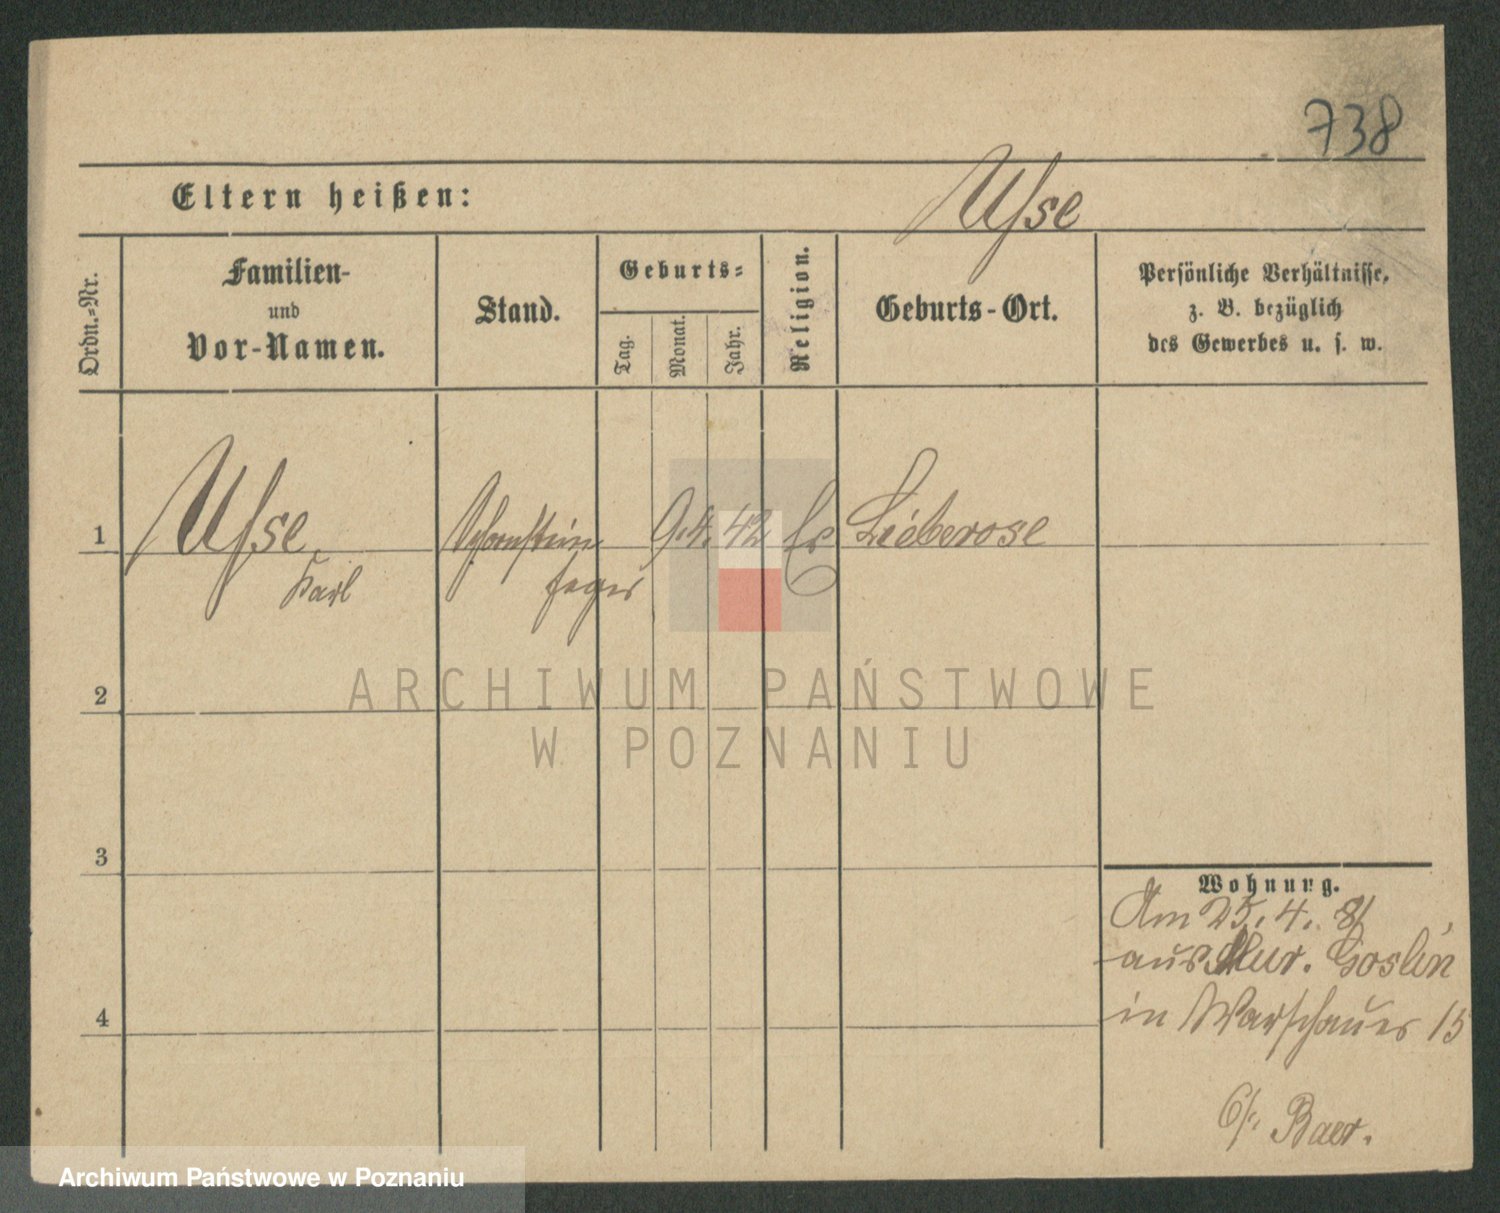 738
Eltern heißen:
Use
Ordn.=Nr.
Familien-
und
Vor-Namen.
Stand.
Geburts=
Tag.
Monat.
Jahr.
Religion.
Geburts-Ort.
Persönliche Verhältnisse,
z. B. bezüglich
des Gewerbes u. s. w.
1
Use,
Karl
Schornstein
feger
9. 4. 42
Lieberose
2
3
4
ARCHIWUM PAŃSTWOWE
W POZNANIU
Wohnung.
Am 25. 4. 81
aus Mur. Goslin
in Warschauer 15
b/. Baer.
Archiwum Państwowe w Poznaniu